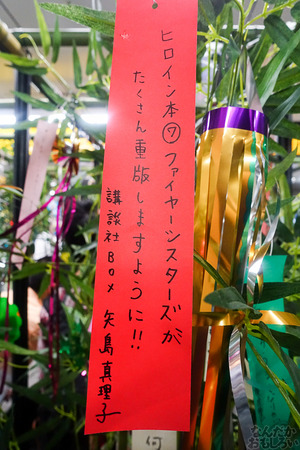 ヒロイン本⑦ファイヤーシスターズが
たくさん重版しますように!!
講談社BOX 矢島真理子
何
なんだか
おもしろい